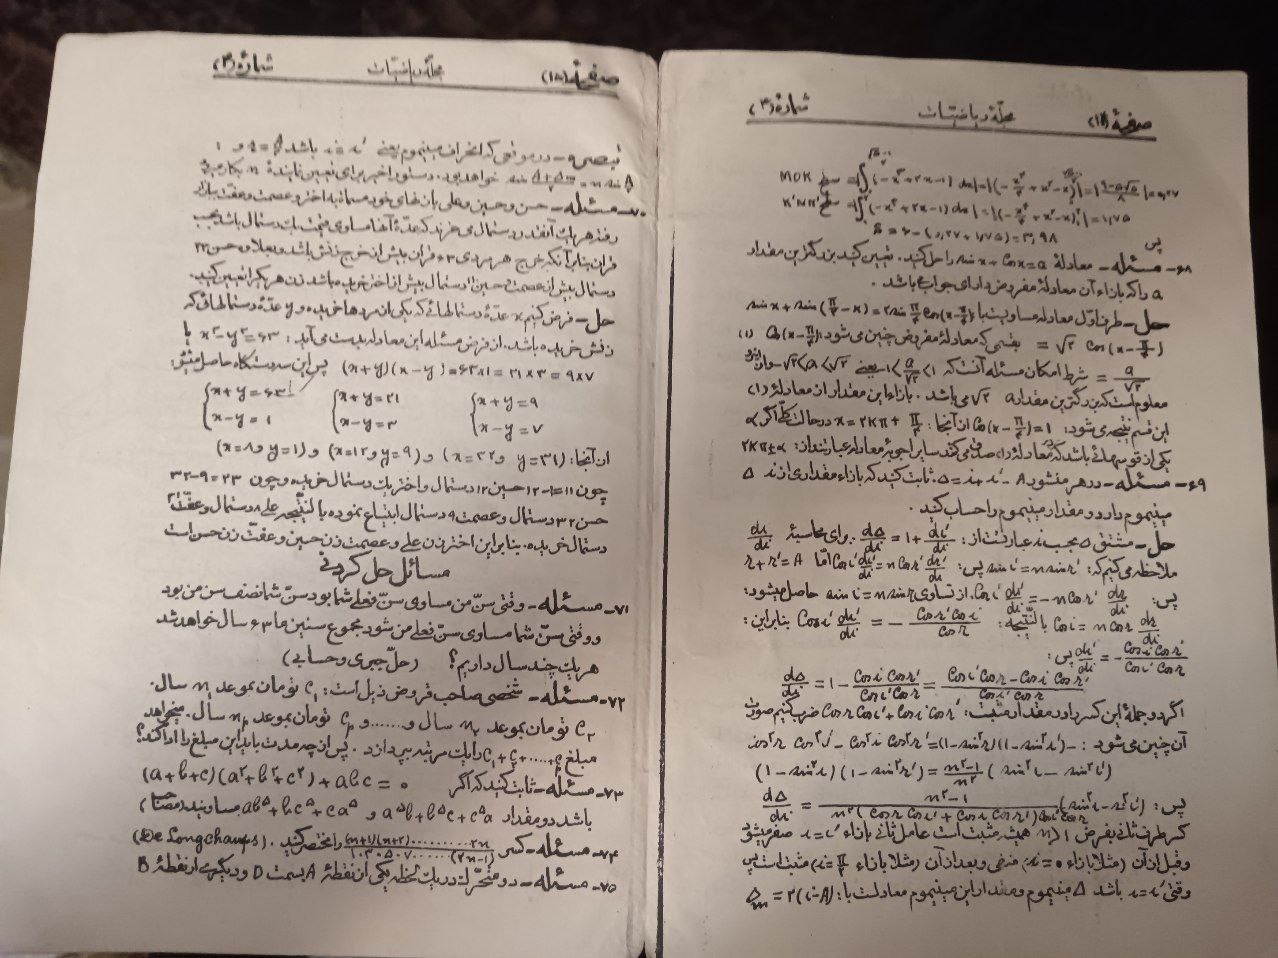 صفحهٔ (۱۴) مجلّهٔ ریاضیّات شمارهٔ (۳)
سطح MOK = |∫(-x²+2x-1) dx| = |(-x³/3+x²-x)| = ۰٫۲۷
سطح K'NN' = |∫(-x²+2x-1) dx| = |(-x³/3+x²-x)| = ۱٫۷۵
پس S = ۶ - (۰٫۲۷+۱٫۷۵) = ۳٫۹۸
۶۸- مسئله- معادلهٔ sin x + cos x = a را حل کنید. تعیین کنید بزرگترین مقدار
a را که بازاء آن معادلهٔ مفروض دارای جواب باشد.
حل- طرف اوّل معادله مساویست با: sin x + sin(π/2 - x) = 2 sin π/4 cos(x - π/4)
= √2 cos(x - π/4) بقسمی که معادلهٔ مفروض چنین می‌شود: (۱) cos(x - π/4)
= a/√2 شرط امکان مسئله آنست که ۱ > a/√2 > -۱ یعنی √2 > a > -√2 و از اینرو
معلوم است که بزرگترین مقدار a √2 می‌باشد. بازاء این مقدار از معادلهٔ (۱)
این قسم نتیجه می‌شود: cos(x - π/4) = 1 از آنجا: x = 2kπ + π/4 در حالت کلّی اگر α
یکی از قوسهائی باشد که در معادلهٔ (۱) صدق می‌کند سایر اجوبهٔ معادله عبارتند از: 2kπ±α
۶۹- مسئله- در هر منشور Δ = i + i' - A ثابت کنید که بازاء مقداری از i، Δ
مینیموم دارد و مقدار مینیموم را حساب کنید.
حل- مشتق Δ بحسب i عبارتست از: dΔ/di = 1 + di'/di. برای محاسبهٔ di'/di
ملاحظه می‌کنیم که: sin i' = n sin r' پس: cos i' di'/di = n cos r' dr'/di امّا r + r' = A
پس: cos i' di'/di = -n cos r' dr/di. از تساوی sin i = n sin r حاصل میشود:
cos i = n cos r dr/di بالنّتیجه: cos i' di'/di = - cos r' cos i / cos r بنابراین:
di'/di = - cos i cos r' / cos i' cos r پس:
dΔ/di = 1 - cos i cos r' / cos i' cos r = (cos i' cos r - cos i cos r') / cos i' cos r
اگر دو جملهٔ این کسر را در مقدار مثبت: cos r cos i' + cos i cos r' ضرب کنیم صورت
آن چنین می‌شود: cos²r cos²i' - cos²i cos²r' = (1-sin²r)(1-sin²i') -
(1 - sin²i)(1 - sin²r') = n²-1/n² (sin²i - sin²i')
پس: dΔ/di = n²-1 / n²(cos r cos i' + cos i cos r') cos i' cos r (sin²i - sin²i')
کسر طرف ثانی بفرض n>1 همیشه مثبت است عامل ثانی بازاء i = i' صفر میشود
وقبل از آن (مثلا بازاء i = 0) منفی و بعد از آن (مثلا بازاء i = π/2) مثبت است پس
وقتی i = i' باشد Δ مینیموم و مقدار این مینیموم معادلست با: Δm = 2i - A
صفحهٔ (۱۵) مجلّهٔ ریاضیّات شمارهٔ (۳)
تبصره- در موقعی که انحراف مینیموم یعنی i = i' باشد r = r' و
sin (A+Δm)/2 = n sin A/2 خواهد بود. دستور اخیر برای تعیین نمایندهٔ n بکار میرود
۷۰- مسئله- حسن و حسین و علی با زنهای خود مسماة به اختر و عصمت و عفّت ببازار
رفته هر یک آنقدر دستمال می‌خرند که عدّهٔ آنها مساوی قیمت یک دستمال است بحسب
قران بنابر آنکه خرج هر مردی ۶۳ قران بیش از خرج زنش باشد و بعلاوه حسن ۲۳
دستمال بیش از عصمت و حسین ۱۱ دستمال بیش از اختر خریده باشد زن هر یک را تعیین کنید.
حل- فرض کنیم x عدّهٔ دستمالهائی که یکی از مردها خریده و y عدّهٔ دستمالهائی که
زنش خریده باشد. از فرض مسئله این معادله بدست می‌آید: x²-y²=۶۳ یا
(x+y)(x-y) = ۶۳×۱ = ۲۱×۳ = ۹×۷ پس این سه دستگاه حاصل میشود
{x+y=۶۳ {x+y=۲۱ {x+y=۹
{x-y=۱ {x-y=۳ {x-y=۷
از آنجا: (x=۳۲ و y=۳۱) و (x=۱۲ و y=۹) و (x=۸ و y=۱)
چون ۱۱=۱-۱۲ حسین ۱۲ دستمال و اختر یک دستمال خریده و چون ۲۳=۹-۳۲
حسن ۳۲ دستمال و عصمت ۹ دستمال ابتیاع نموده بالنّتیجه علی ۸ دستمال و عفّت ۳۱
دستمال خریده. بنابراین اختر زن علی و عصمت زن حسین و عفّت زن حسن است
مسائل حل کردنی
۷۱- مسئله- وقتی سنّ من مساوی سنّ فعلی شما بود سنّ شما نصف سن من بود
و وقتی سنّ شما مساوی سنّ فعلی من شود مجموع سنین ما ۶۳ سال خواهد شد
هر یک چند سال داریم؟ (حلّ جبری و حسابی)
۷۲- مسئله- شخصی صاحب قروض ذیل است: C₁ تومان بموعد n₁ سال.
C₂ تومان بموعد n₂ سال و...... و Cₚ تومان بموعد nₚ سال. میخواهد
مبلغ C₁+C₂+....+Cₚ را یک مرتبه بپردازد. پس از چه مدت باید این مبلغ را ادا کند؟
۷۳- مسئله- ثابت کنید که اگر (a+b+c)(a²+b²+c²)+abc = ۰
باشد دو مقدار a⁵b+b⁵c+c⁵a و ab⁵+bc⁵+ca⁵ مساویند
۷۴- مسئله- کسر (n+1)(n+2)..........2n / ۱·۳·۵·۷......(2n-1) را مختصر کنید. (De Longchamps)
۷۵- مسئله- دو متحرّک در یک لحظه یکی از نقطهٔ A بسمت D و دیگری از نقطهٔ B